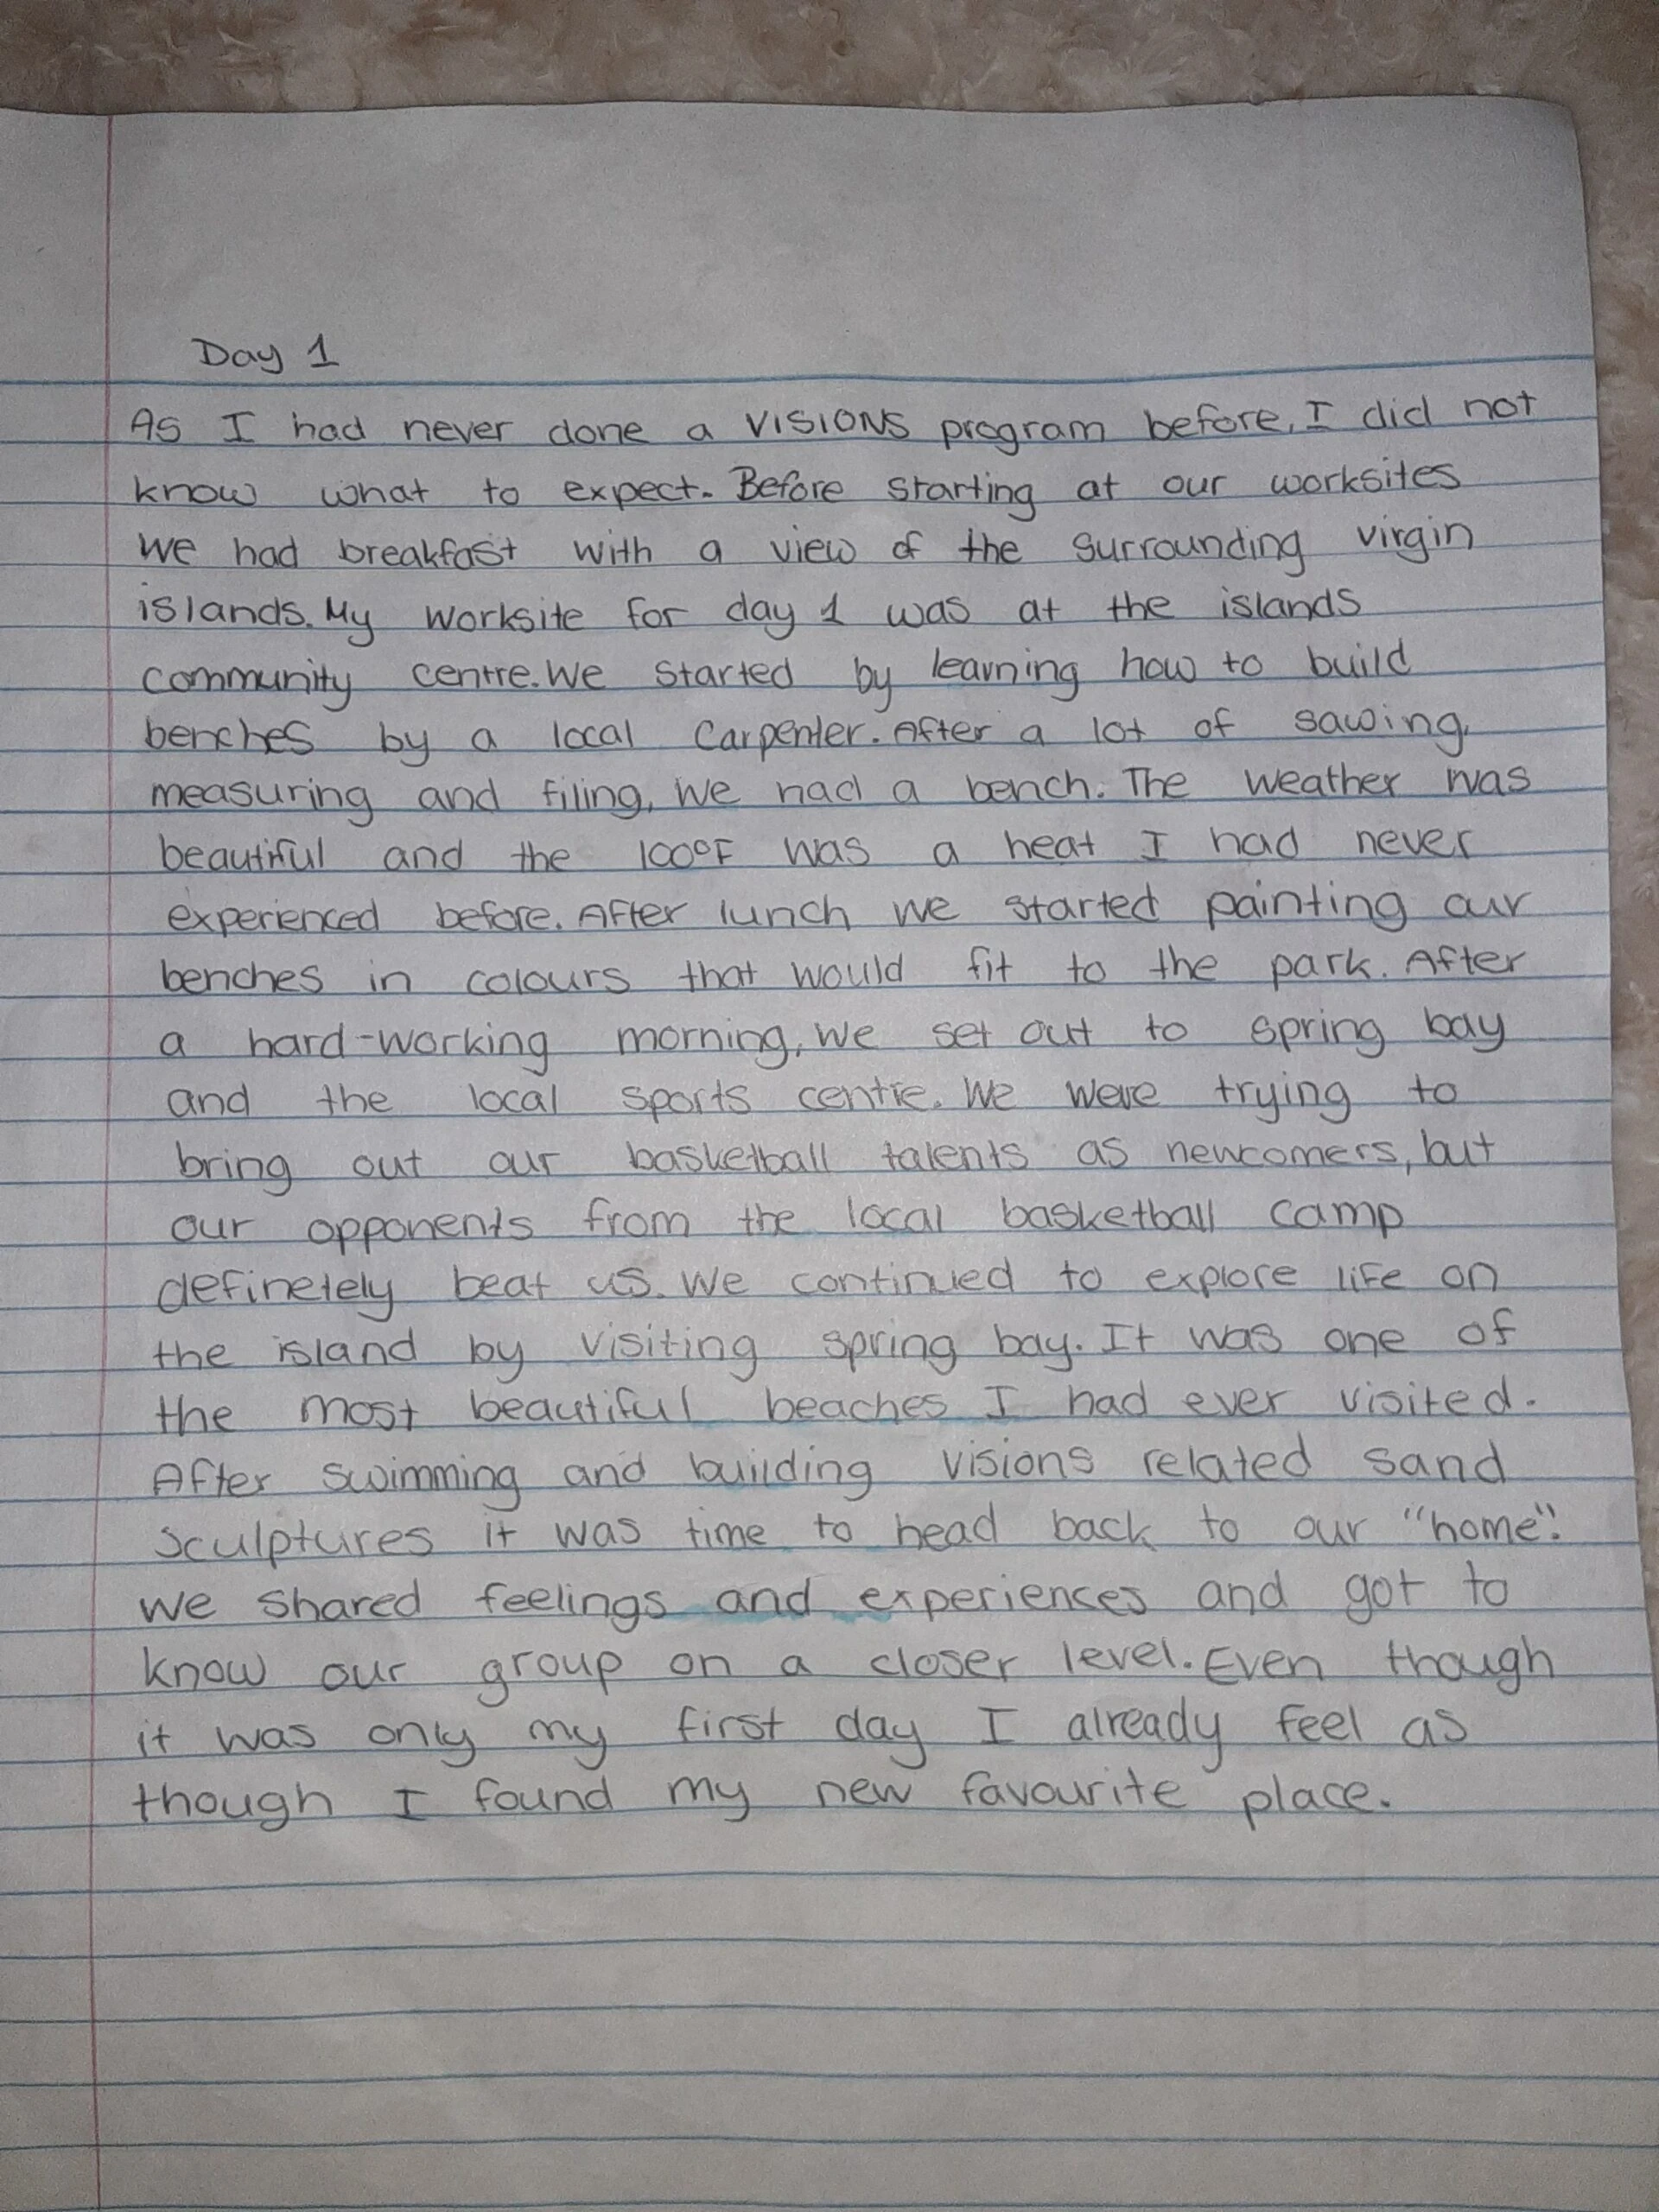 Day 1
As I had never done a VISIONS program before, I did not
know what to expect. Before starting at our worksites
we had breakfast with a view of the surrounding virgin
islands. My worksite for day 1 was at the islands
community centre. We started by learning how to build
benches by a local carpenter. After a lot of sawing,
measuring and filing, we had a bench. The weather was
beautiful and the 100°F was a heat I had never
experienced before. After lunch we started painting our
benches in colours that would fit to the park. After
a hard-working morning, we set out to spring bay
and the local sports centre. We were trying to
bring out our basketball talents as newcomers, but
our opponents from the local basketball camp
definetely beat us. We continued to explore life on
the island by visiting spring bay. It was one of
the most beautiful beaches I had ever visited.
After swimming and building visions related sand
sculptures it was time to head back to our "home".
We shared feelings and experiences and got to
know our group on a closer level. Even though
it was only my first day I already feel as
though I found my new favourite place.